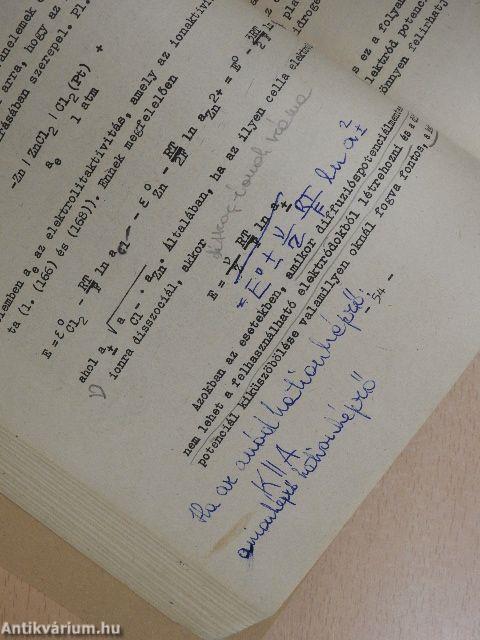 anelemek
arra, hogy az
rásában szerepel. Pl.
-Zn | ZnCl2 | Cl2(Pt) +
ae 1 atm
elemben ae az elektrolitaktivitás, amely az ionaktivitás
ta (l. (166) és (168)). Ennek megfelelően
E = ε°Cl2 - RT/F ln aCl- - ε°Zn - RT/2F ln aZn2+ = E° - RT/2F
ahol a± = √aCl- · aZn. Általában, ha az ilyen cella elektro
ν ionra disszociál, akkor
E = RT/F ln a±
= E° ± ν/z RT/F ln a±²
Azokban az esetekben, amikor diffuziópotenciálmente
nem lehet a felhasználható elektródokból létrehozni és a
potenciál kiküszöbölése valamilyen oknál fogva fontos, a
- 54 -
Ha az anód kationképző:
K || A
anionképző kationképző
s ez a folyam
lektród potenc
önnyen felírhatj
pla
idrogé
Antikvárium.hu
Antikvárium.hu